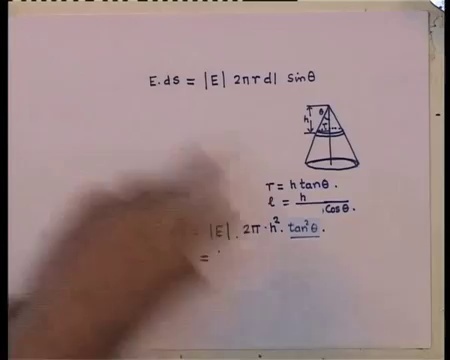 E.ds = |E| 2πrdl sinθ
θ
h
r
r = h tanθ.
l = h / cosθ.
= |E|. 2π.h². tan²θ.
=